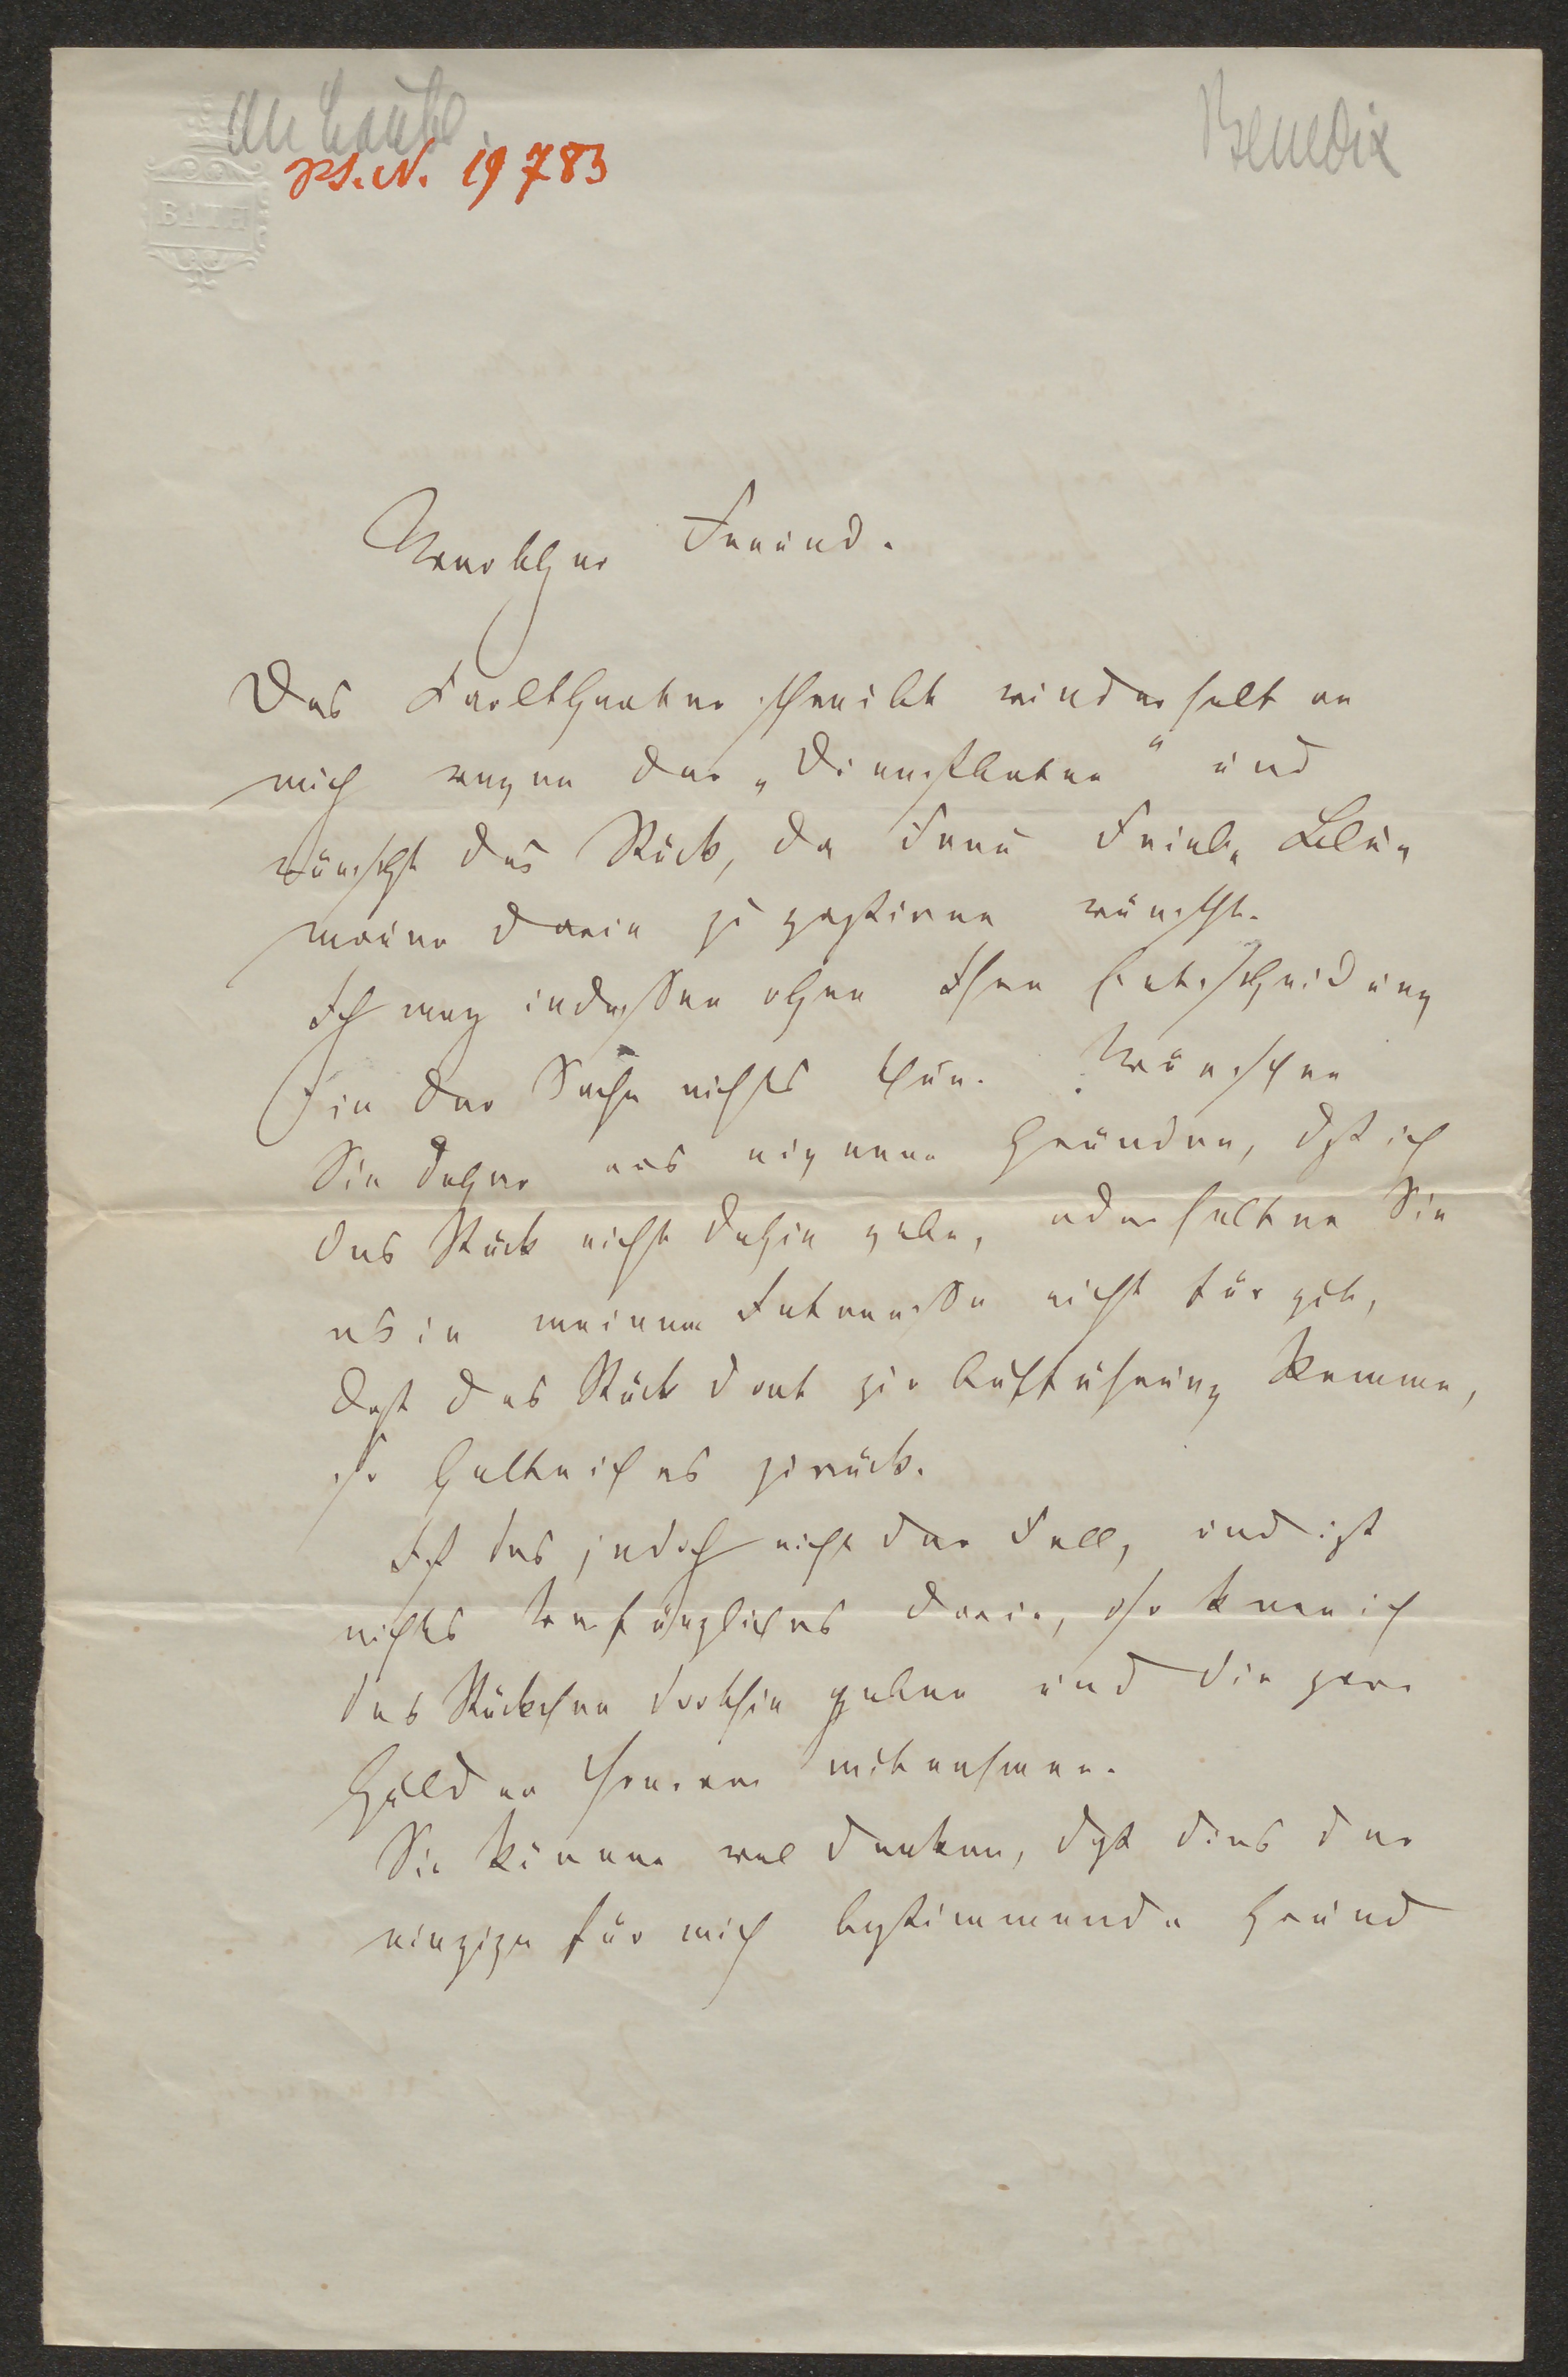 An Laube.
Benedix
PS. N. 19783
BATH
Verehrter Freund.
Das Carltheater schreibt wiederholt an
mich wegen der „Dienstboten“ und
wünscht das Stück, da Frau Frieb-Blum
maur darin zu gastiren wünscht.
Ich mag indessen ohne Ihre Entscheidung
in der Sache nichts thun. Wünschen
Sie daher aus eigenen Gründen, daß ich
das Stück nicht dahin gebe, oder halten Sie
es in meinem Interesse nicht für gut,
daß das Stück dort zur Aufführung komme,
so halte ich es zurück.
Ist das jedoch nicht der Fall, und ist
nichts Verfängliches darin, so kann ich
das Stückchen dorthin geben und die paar
Gulden Honorar mitnehmen.
Sie können wol denken, daß dies der
einzige für mich bestimmende Grund